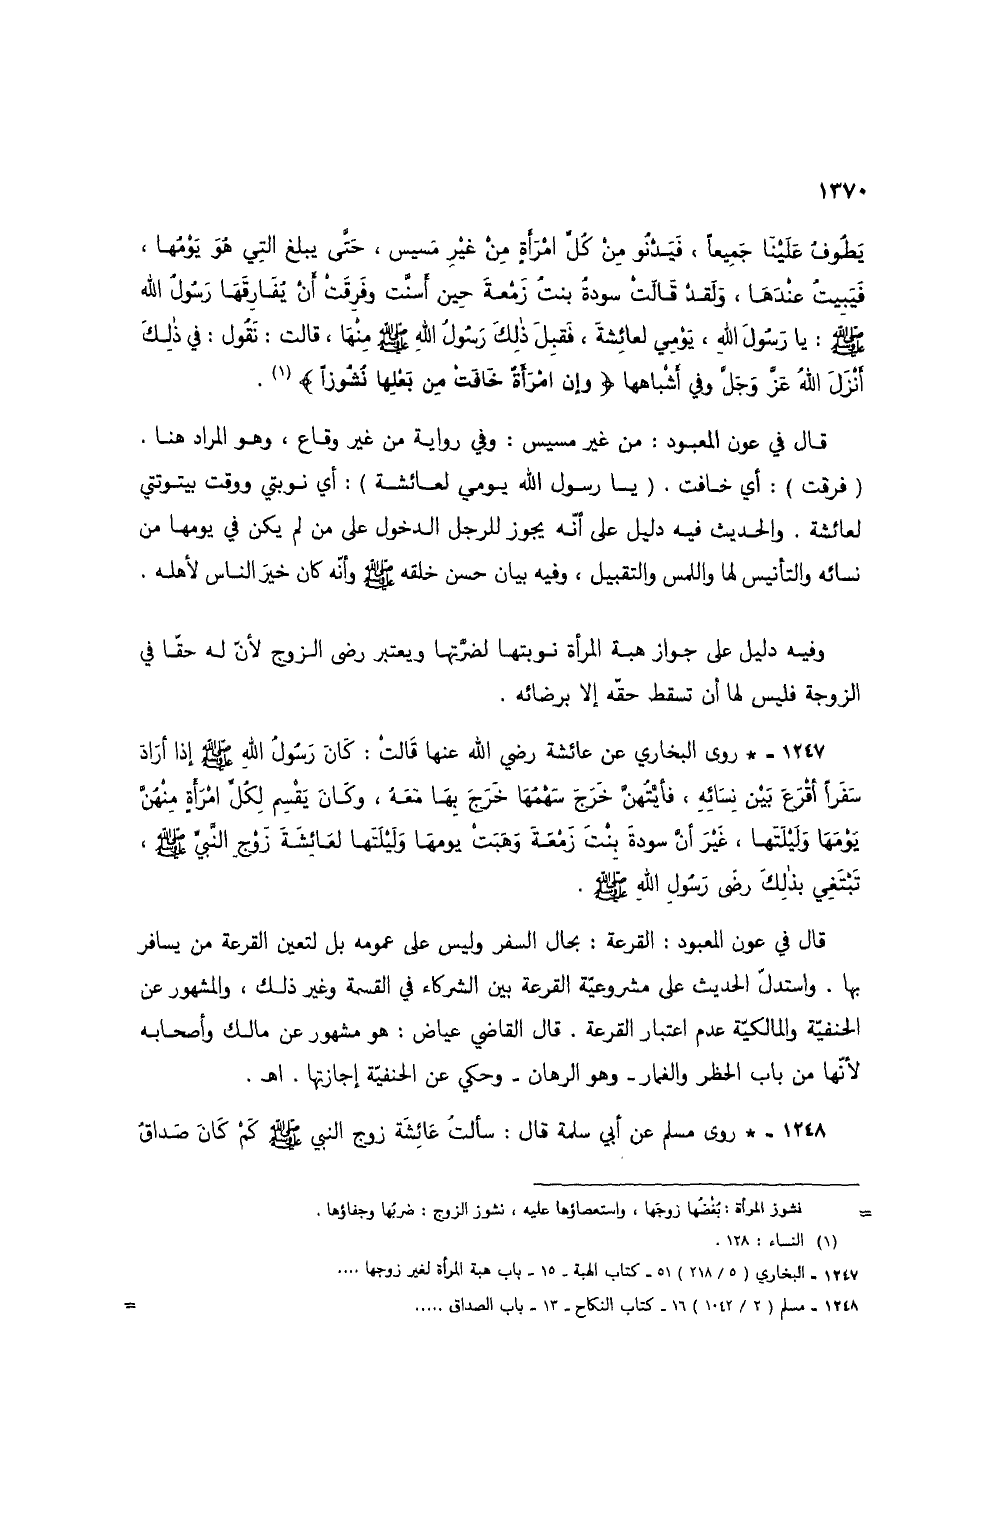 ١٣٧٠
يَطُوفُ عَلَيْنَا جَمِيعاً ، فَيَدْنُو مِنْ كُلِّ امْرَأَةٍ مِنْ غَيْرِ مَسيس ، حَتَّى يبلغ التِي هُوَ يَوْمُها ،
فَيَبِيتُ عنْدَهَا ، وَلَقدْ قَالَتْ سودةُ بنتُ زَمْعةَ حين أَسنَّت وفَرِقَتْ أَنْ يُفَارِقَهَا رَسُولُ الله
ﷺ : يا رَسُولَ اللهِ ، يَوْمِي لعائشةَ ، فَقبِلَ ذٰلِكَ رَسُولُ اللهِ ﷺ مِنْهَا ، قالت : نَقُول : في ذٰلِكَ
أَنْزَلَ اللهُ عَزَّ وَجَلَّ وفي أَشْباهها ﴿ وإن امْرَأَةٌ خَافَتْ مِن بَعْلِها نُشُوزاً ﴾ (١) .
قال في عون المعبود : من غير مسيس : وفي رواية من غير وقاع ، وهو المراد هنا .
( فرقت ) : أي خافت . ( يا رسول الله يومي لعائشة ) : أي نوبتي ووقت بيتوتتي
لعائشة . والحديث فيه دليل على أنّه يجوز للرجل الدخول على من لم يكن في يومها من
نسائه والتأنيس لها واللمس والتقبيل ، وفيه بيان حسن خلقه ﷺ وأنّه كان خيرَ الناس لأهله .
وفيه دليل على جواز هبة المرأة نوبتها لضرَّتها ويعتبر رضى الزوج لأنّ له حقّا في
الزوجة فليس لها أن تسقط حقّه إلا برضائه .
١٢٤٧ - * روى البخاري عن عائشة رضي الله عنها قَالتْ : كَانَ رَسُولُ اللهِ ﷺ إذا أرَادَ
سَفَراً أقْرَعَ بَيْن نِسَائِهِ ، فأيَّتُهنَّ خَرَجَ سَهْمُهَا خَرَجَ بِهَا مَعَهُ ، وكَانَ يَقْسِم لِكُلِّ امْرَأَةٍ مِنْهُنَّ
يَوْمَهَا وَلَيْلَتَها ، غَيْرَ أنَّ سودةَ بِنْتَ زَمْعَةَ وَهَبَتْ يومهَا وَلَيْلَتَها لعَائِشَةَ زَوْجِ النَّبِيِّ ﷺ ،
تَبْتَغِي بذٰلِكَ رضَى رَسُولِ اللهِ ﷺ .
قال في عون المعبود : القرعة : بحال السفر وليس على عمومه بل لتعين القرعة من يسافر
بها . واستدلّ الحديث على مشروعيّة القرعة بين الشركاء في القسمة وغير ذلك ، والمشهور عن
الحنفيّة والمالكيّة عدم اعتبار القرعة . قال القاضي عياض : هو مشهور عن مالك وأصحابه
لأنّها من باب الحظر والقمار - وهو الرهان - وحكي عن الحنفيّة إجازتها . اهـ .
١٢٤٨ - * روى مسلم عن أبي سلمة قال : سألتُ عَائِشَة زوج النبي ﷺ كَمْ كَانَ صَداقُ
= نشوز المرأة : بُغْضُها زوجَها ، واستعصاؤها عليه ، نشوز الزوج : ضربُها وجفاؤها .
(١) النساء : ١٢٨ .
١٢٤٧ - البخاري ( ٥ / ٢١٨ ) ٥١ - كتاب الهبة - ١٥ - باب هبة المرأة لغير زوجها ....
١٢٤٨ - مسلم ( ٢ / ١٠٤٢ ) ١٦ - كتاب النكاح - ١٣ - باب الصداق ..... =